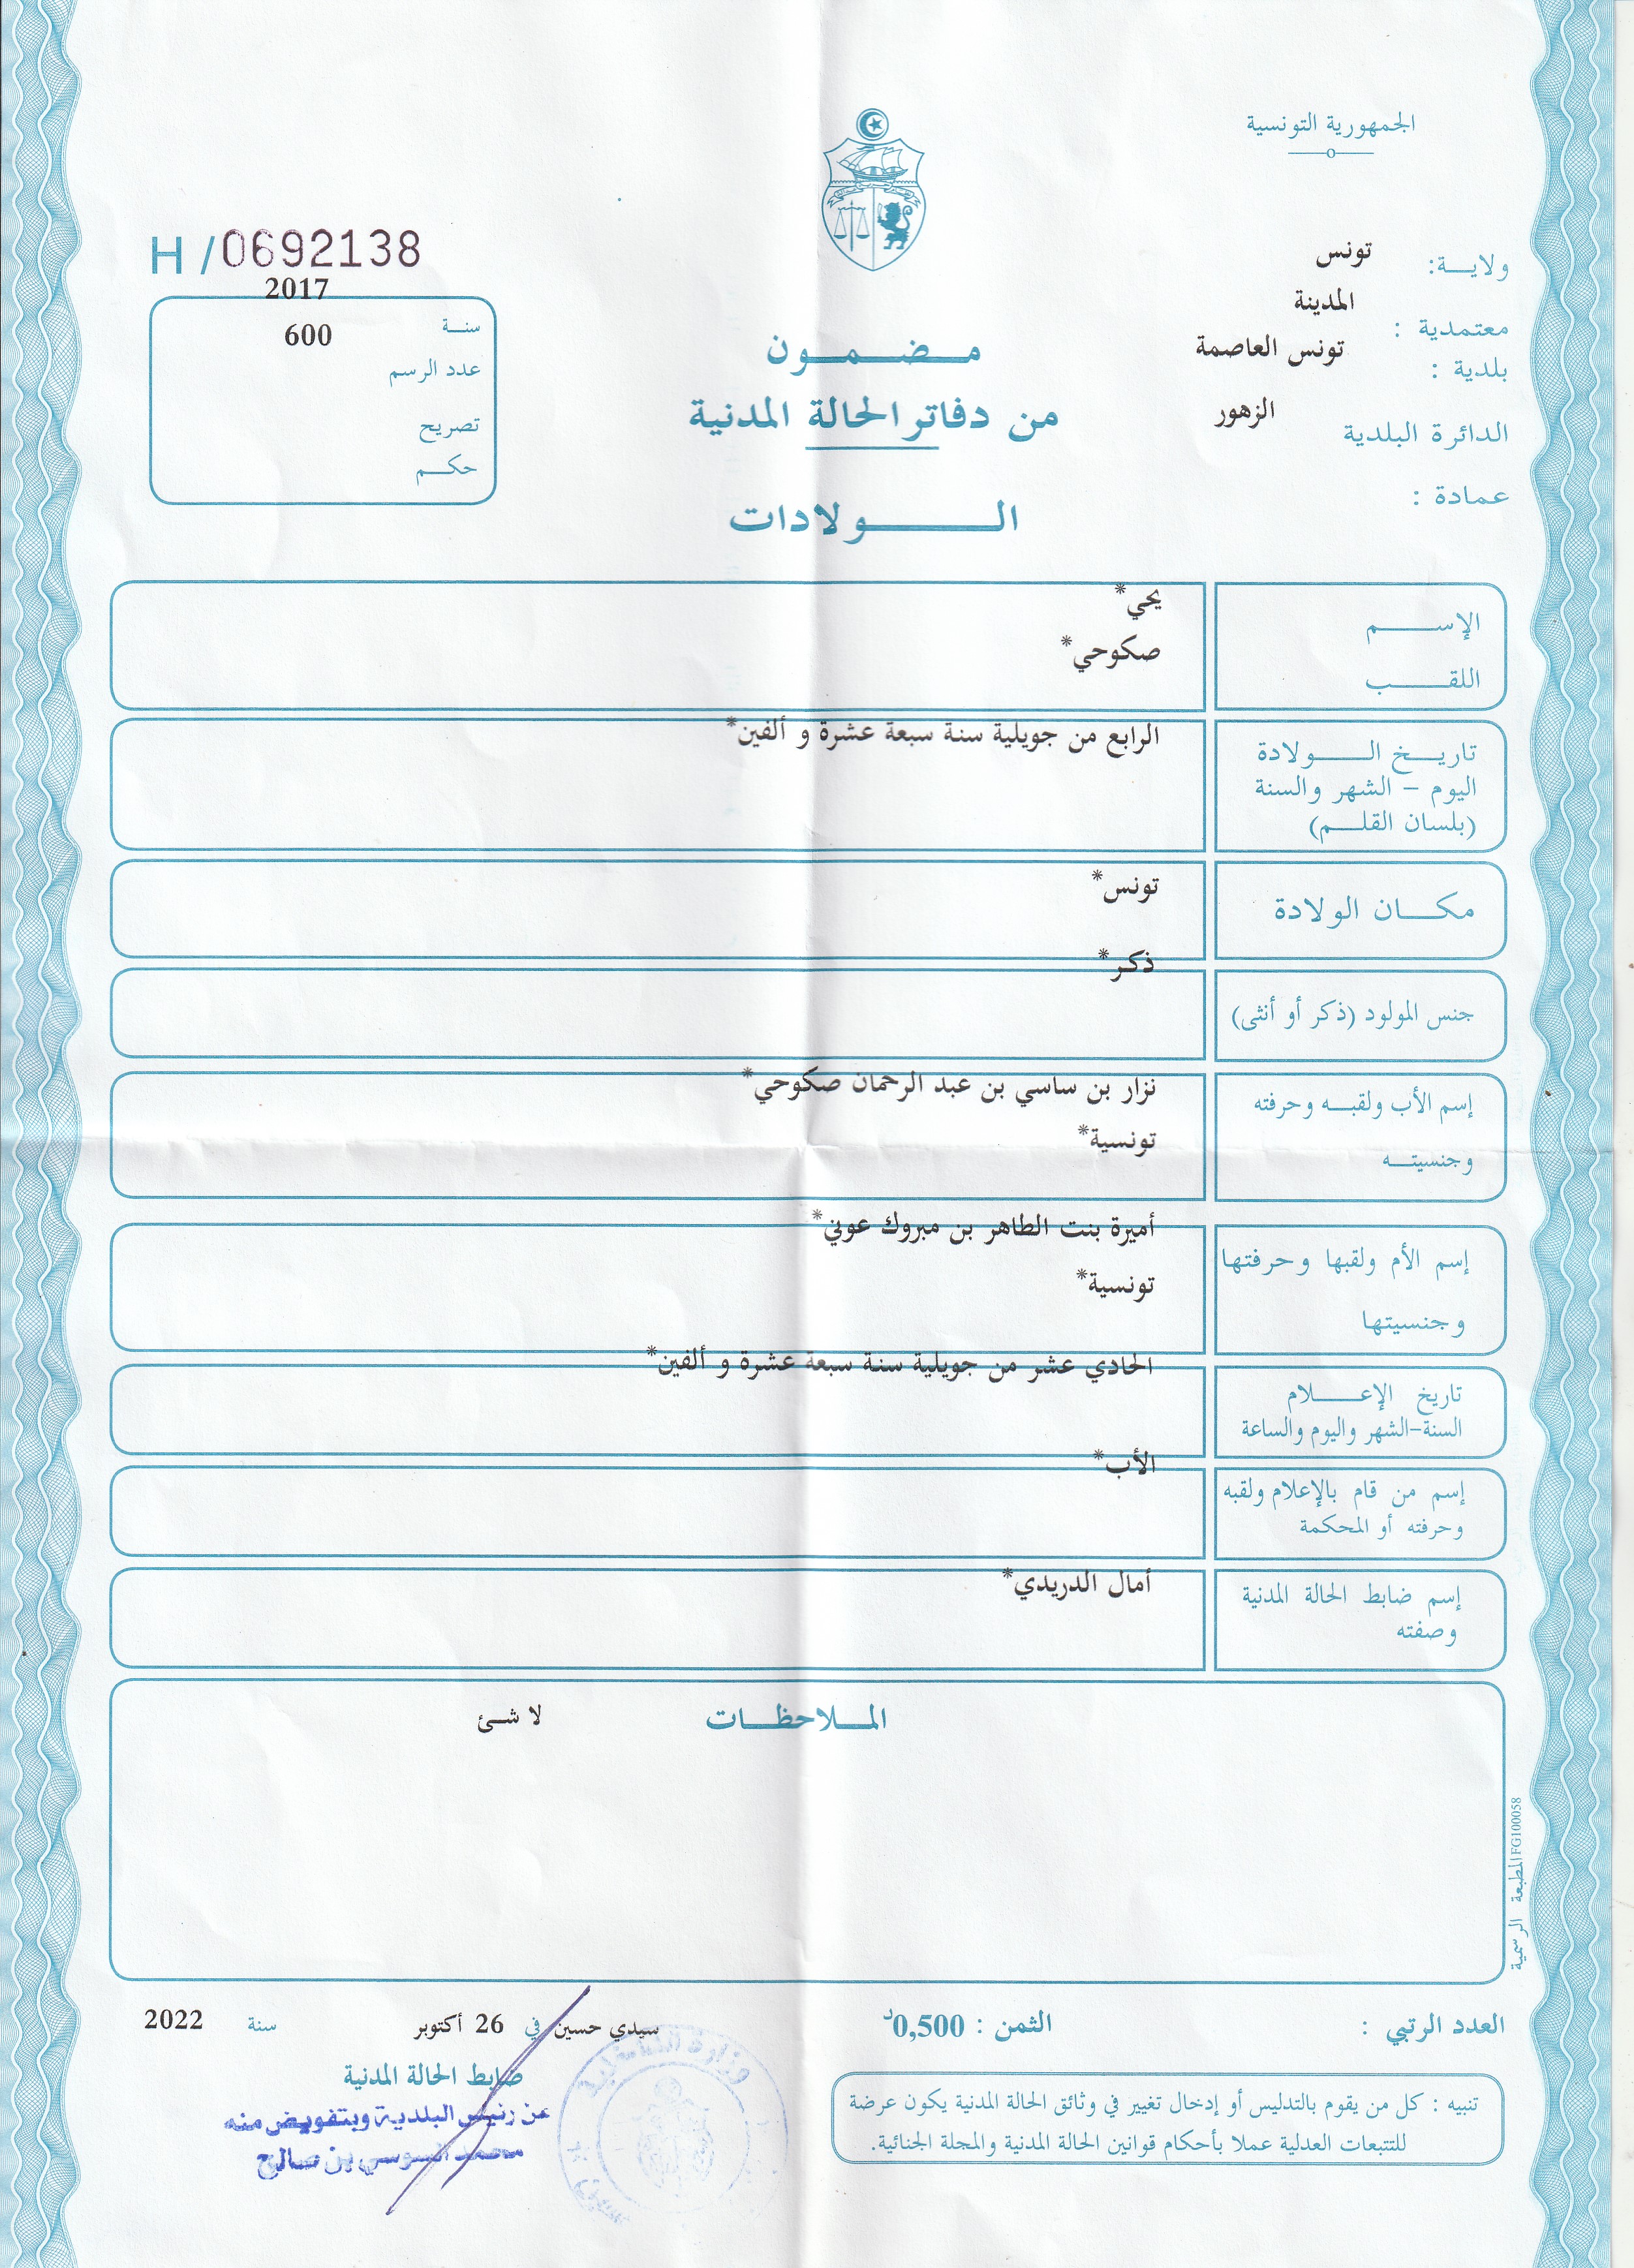 الجمهورية التونسية
ولايـــة: تونس
معتمدية : المدينة
بلدية : تونس العاصمة
الدائرة البلدية الزهور
عمادة :
H / 0692138
سنـــة 2017
عدد الرسم 600
تصريح
حكـــم
مـضـمـون
من دفاتر الحالة المدنية
الـــولادات
الإســـــم يحي*
اللقـــــب صكوحي*
تاريــخ الـــولادة الرابع من جويلية سنة سبعة عشرة و ألفين*
اليوم - الشهر والسنة
(بلسان القلـــم)
مكـــان الولادة تونس*
جنس المولود (ذكر أو أنثى) ذكر*
إسم الأب ولقبـــه وحرفته نزار بن ساسي بن عبد الرحمان صكوحي*
وجنسيتـــه تونسية*
إسم الأم ولقبها وحرفتها أميرة بنت الطاهر بن مبروك عوني*
وجنسيتها تونسية*
تاريخ الإعـــــلام الحادي عشر من جويلية سنة سبعة عشرة و ألفين*
السنة-الشهر واليوم والساعة
إسم من قام بالإعلام ولقبه الأب*
وحرفته أو المحكمة
إسم ضابط الحالة المدنية أمال الدريدي*
وصفته
المــلاحظــات لا شئ
المطبعة الرسمية FG100058
العدد الرتبي :
الثمن : 0,500د
سيدي حسين في 26 أكتوبر سنة 2022
ضابط الحالة المدنية
عن رئيس البلدية وبتفويض منه
محمد السوسي بن صالح
تنبيه : كل من يقوم بالتدليس أو إدخال تغيير في وثائق الحالة المدنية يكون عرضة
للتتبعات العدلية عملا بأحكام قوانين الحالة المدنية والمجلة الجنائية.